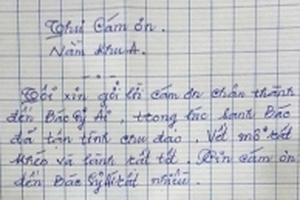 Thư Cám ơn.
Nằm Khu A.
Tôi xin gởi lời cám ơn chân thành
đến Bác Sỹ Ái, trong lúc sanh Bác
đã tận tình chu đáo. Vết mổ rất
khéo và lành rất tốt. Xin cám ơn
đến Bác Sỹ rất nhiều.